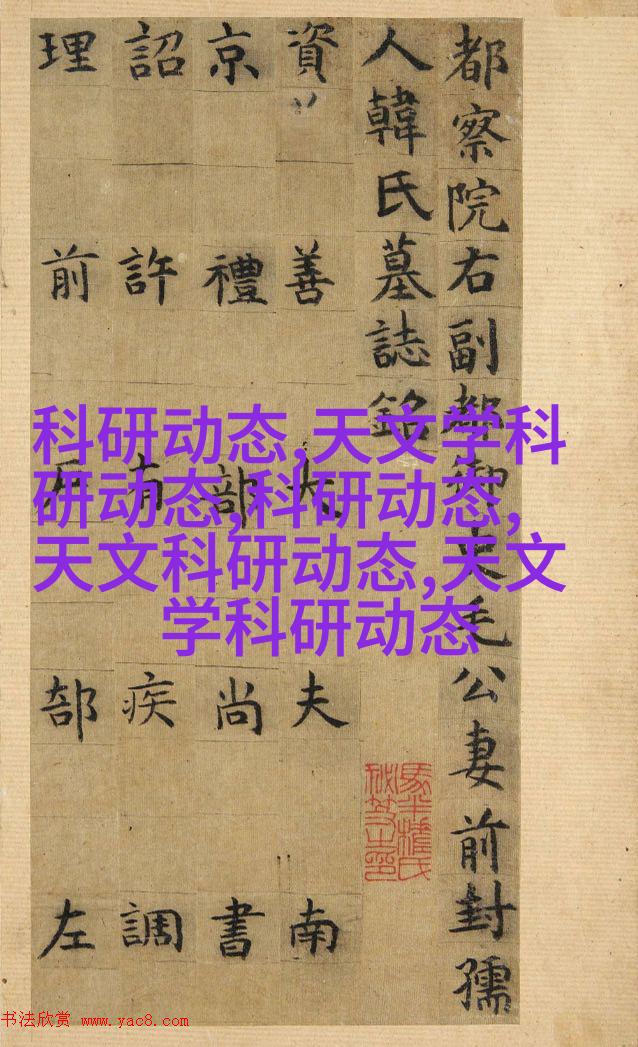 都察院右副都御史毛公妻前封孺
人韓氏墓誌銘
資善大夫南
京禮部尚書
詔許有疾調
理前部左
科研动态,天文学科
研动态,科研动态,
天文科研动态,天文
学科研动态
书法欣赏 www.yac8.com